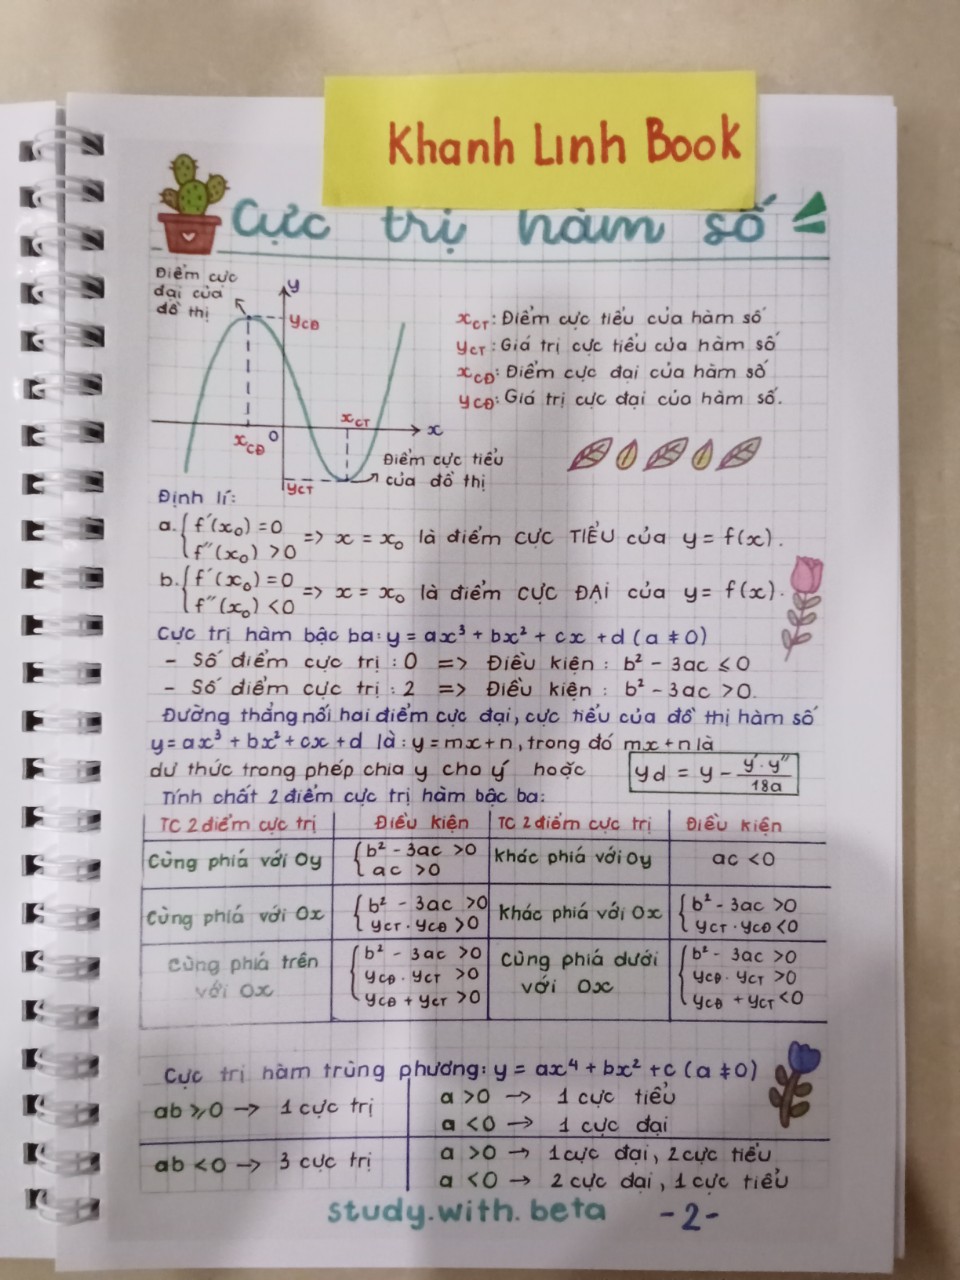 Khanh Linh Book
Cực trị hàm số
Điểm cực
đại của
đồ thị
y
yCĐ
xCT: Điểm cực tiểu của hàm số
yCT: Giá trị cực tiểu của hàm số
xCĐ: Điểm cực đại của hàm số
yCĐ: Giá trị cực đại của hàm số.
xCT
O
x
xCĐ
Điểm cực tiểu
của đồ thị
yCT
Định lí:
a. { f'(x₀) = 0
f''(x₀) > 0 => x = x₀ là điểm cực TIỂU của y = f(x).
b. { f'(x₀) = 0
f''(x₀) < 0 => x = x₀ là điểm cực ĐẠI của y = f(x).
Cực trị hàm bậc ba: y = ax³ + bx² + cx + d (a ≠ 0)
- Số điểm cực trị : 0 => Điều kiện : b² - 3ac ≤ 0
- Số điểm cực trị : 2 => Điều kiện : b² - 3ac > 0.
Đường thẳng nối hai điểm cực đại, cực tiểu của đồ thị hàm số
y = ax³ + bx² + cx + d là : y = mx + n, trong đó mx + n là
dư thức trong phép chia y cho y' hoặc yd = y - y'.y''/18a
Tính chất 2 điểm cực trị hàm bậc ba:
TC 2 điểm cực trị Điều kiện TC 2 điểm cực trị Điều kiện
Cùng phiá với Oy { b² - 3ac > 0
ac > 0
khác phiá với Oy ac < 0
Cùng phiá với Ox { b² - 3ac > 0
yCT . yCĐ > 0
khác phiá với Ox { b² - 3ac > 0
yCT . yCĐ < 0
Cùng phiá trên
với Ox
{ b² - 3ac > 0
yCĐ . yCT > 0
yCĐ + yCT > 0
Cùng phiá dưới
với Ox
{ b² - 3ac > 0
yCĐ . yCT > 0
yCĐ + yCT < 0
Cực trị hàm trùng phương: y = ax⁴ + bx² + c (a ≠ 0)
ab ≥ 0 → 1 cực trị
a > 0 → 1 cực tiểu
a < 0 → 1 cực đại
ab < 0 → 3 cực trị
a > 0 → 1 cực đại, 2 cực tiểu
a < 0 → 2 cực đại, 1 cực tiểu
study.with.beta
-2-